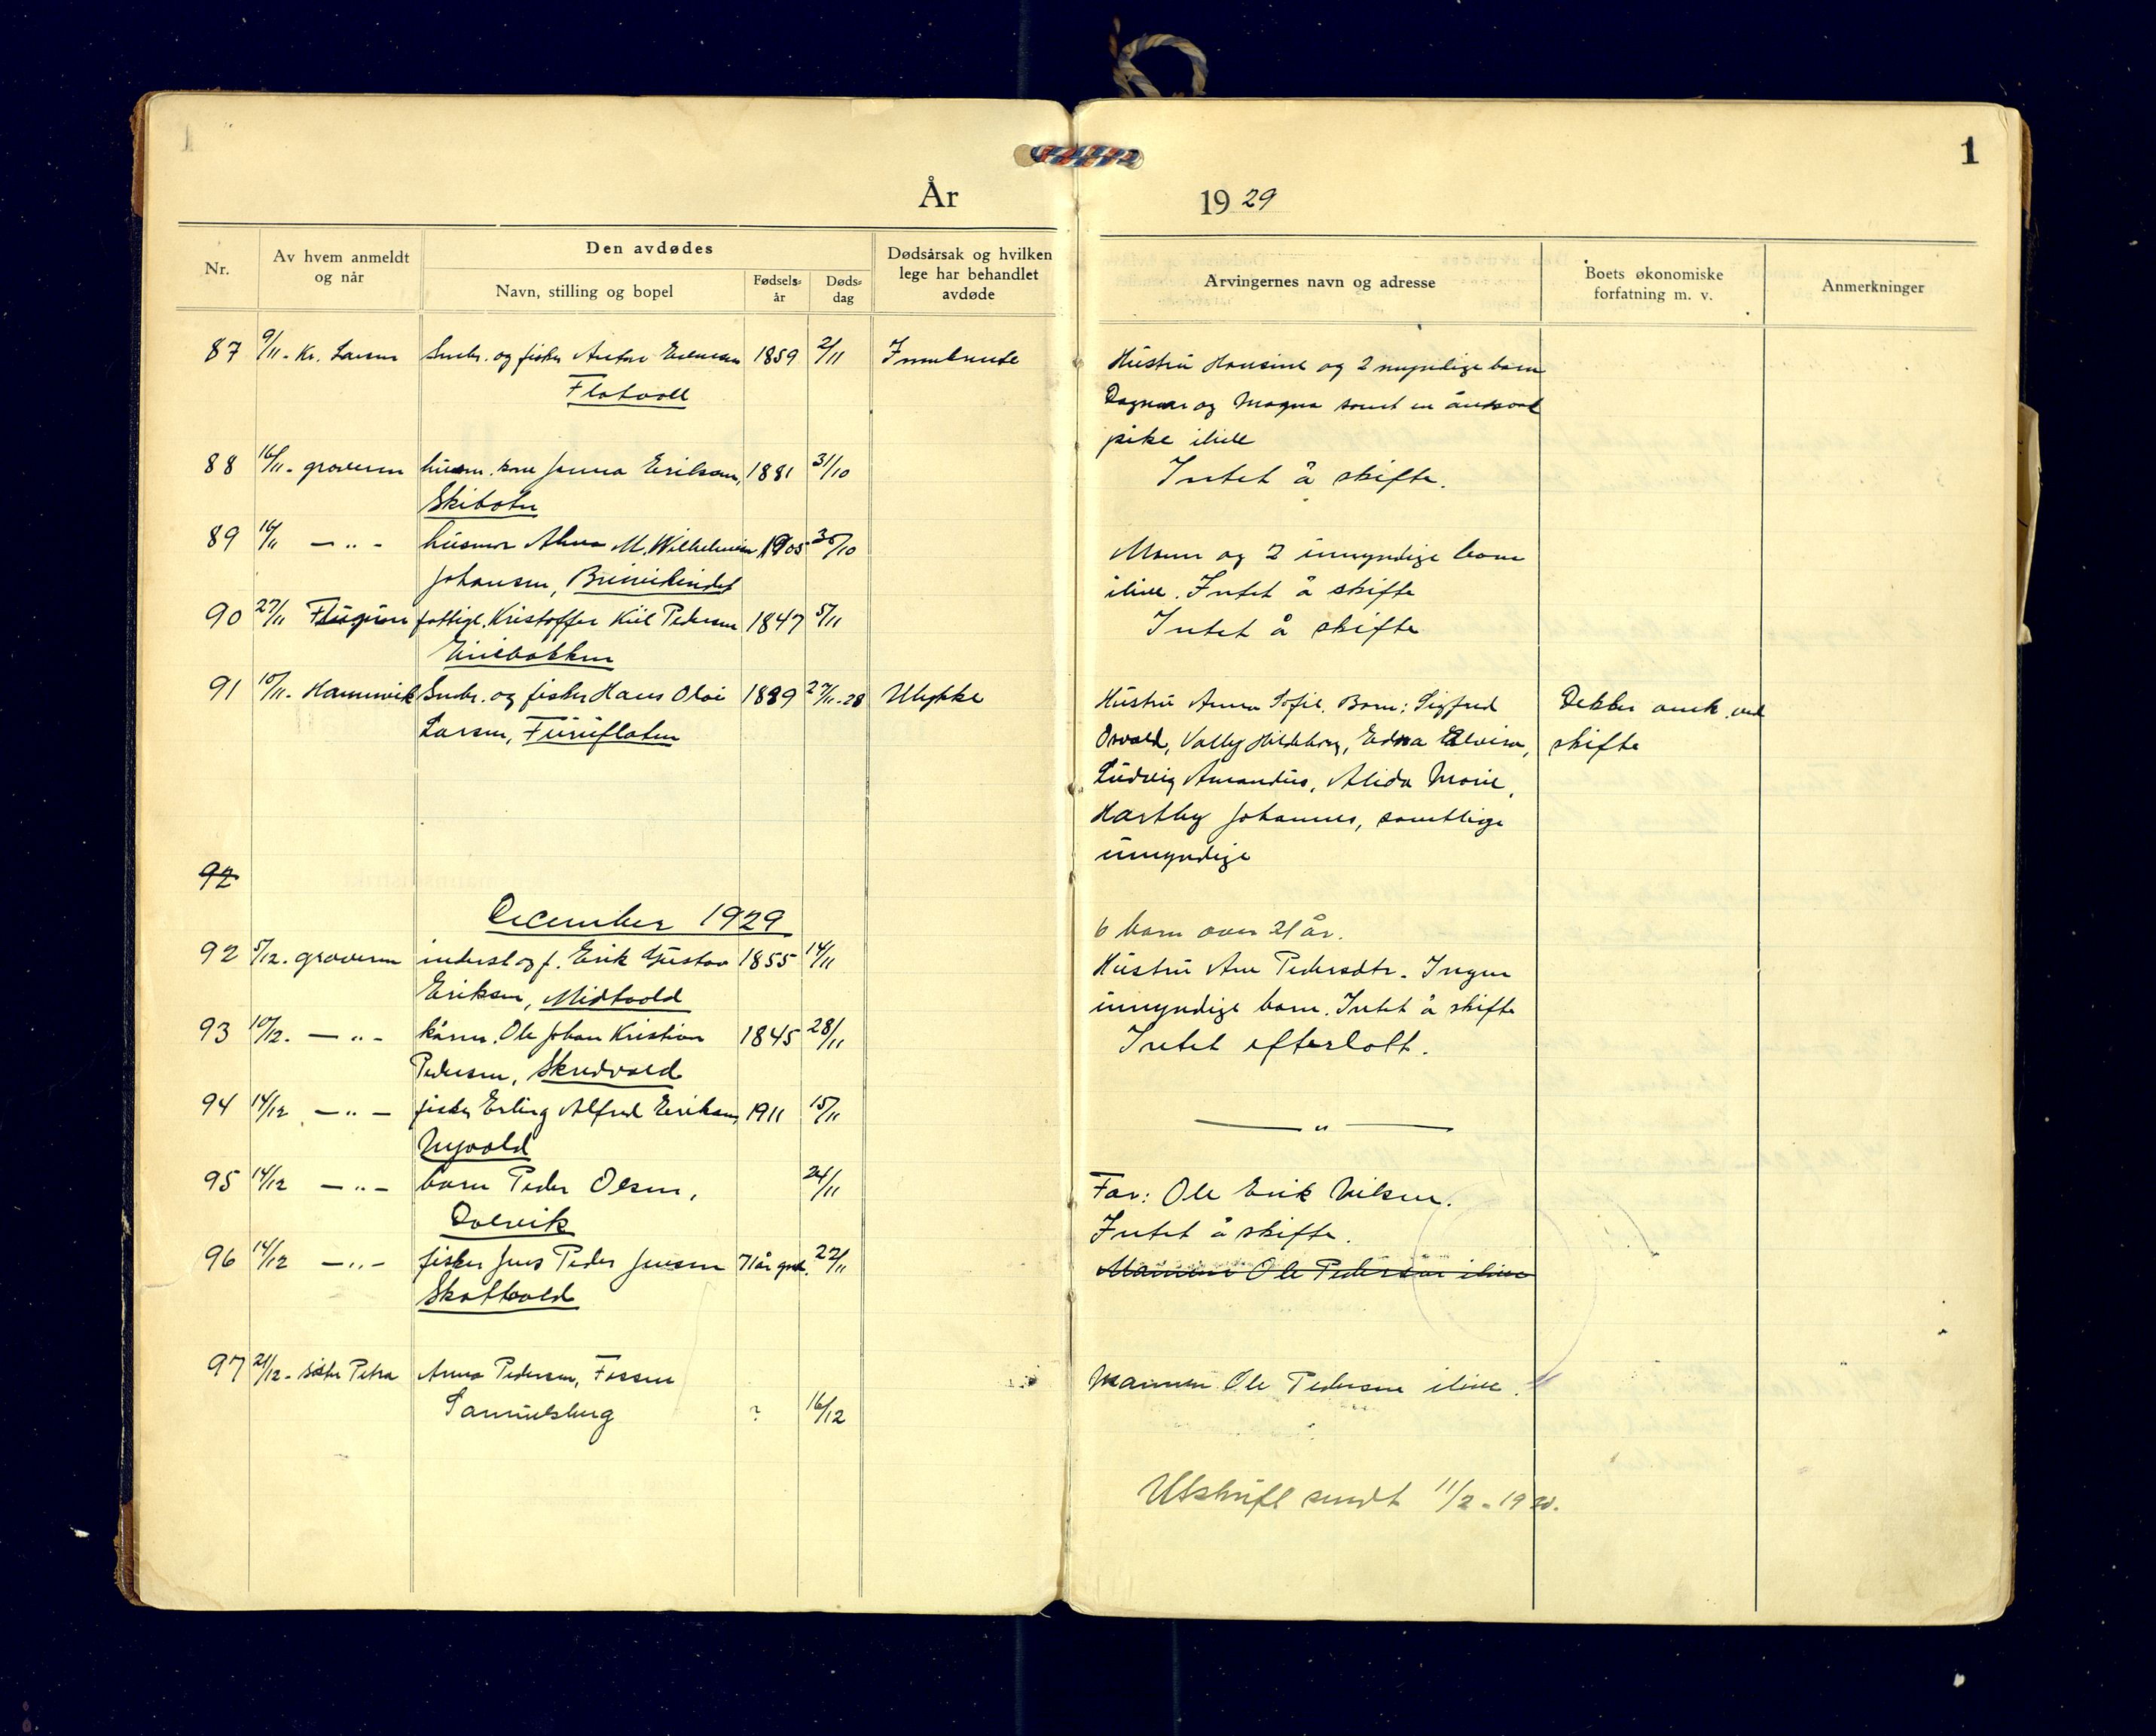 1
År
1929
Nr.
Av hvem anmeldt
og når
Den avdødes
Navn, stilling og bopel
Fødsels-
år
Døds-
dag
Dødsårsak og hvilken
lege har behandlet
avdøde
Arvingernes navn og adresse
Boets økonomiske
forfatning m. v.
Anmerkninger
87 9/11 - Kr. Larsen Smbr. og fisker Anton 1859 2/11
Flatvoll
Hustru Hansine og 2 myndige barn
Dagmar og Magna samt en
pike ilive
88 16/11 - graveren husm. kone Janna Eriksen, 1881 31/10
Skibotn
Intet å skifte.
89 16/11 — " — husmor Alma M. Wilhelmine 1905 30/10
Johansen,
Mann og 2 umyndige barn
ilive. Intet å skifte
90 27/11 fattigl. Kristoffer Kiil Pedersen 1847 5/11
Intet å skifte
91 10/11 - Hamnvik Smbr. og fisker Hans Olai 1889 27/11-28 Ulykke
Larsen, Furuflaten
Hustru Anna Sofie. Barn: Sigfred
Osvald, Valby Hildeborg, Edna Elvira,
Ludvig Amandus, Alida Marie,
Hartby Johannes, samtlige
umyndige
Dekker omk. ved
skifte
92
December 1929
92 5/12 - graveren inderst og f. Erik Gustav 1855 14/11
Eriksen, Midtvold
6 barn over 21 år.
Hustru Ane Pedersdtr. Ingen
umyndige barn. Intet å skifte
93 10/12 - — " — kårm. Ole Johan Kristian 1845 28/11
Pedersen, Skredvold
Intet efterlatt.
94 14/12 — " — fisker Erling Alfred Eriksen, 1911 15/11
Nyvold
— " —
95 14/12 — " — barn Peder Olsen, 24/11
Dalvik
Far: Ole Erik Nilsen.
Intet å skifte.
96 14/12 — " — fisker Jens Peder Jensen 71 år gml. 27/11
Skattvold
Mannen Ole Pedersen ilive
97 21/12 - søster Petra Anna Pedersen, Fossen
Samuelsberg ? 16/12
Mannen Ole Pedersen ilive.
Utskrift sendt 11/2 - 1930.